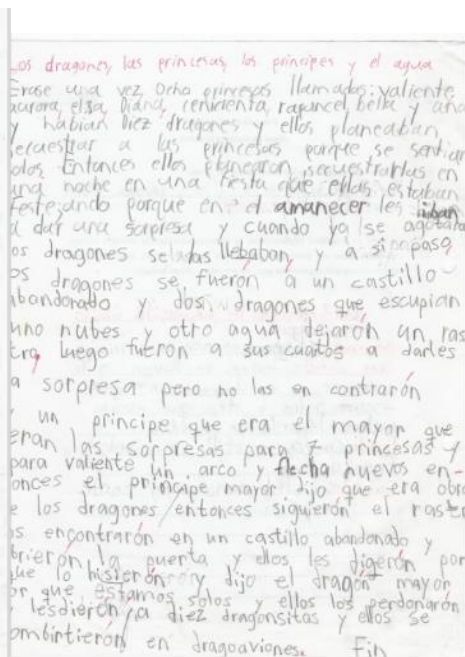 Los dragones, las princesas, los principes y el agua
Erase una vez ocho princesas llamadas: valiente,
aurora, elsa, Diana, cenicienta, rapuncel, bella y ana
y habian Diez dragones y ellos planeaban
secuestrar a las princesas porque se sentian
solos Entonces ellos planearon secuestrarlas en
una noche en una fiesta que ellas estaban
festejando porque en el amanecer les iban
a dar una sorpresa y cuando ya se
os dragones se las llebaban, y a si paso
os dragones se fueron a un castillo
abondonado y dos dragones que escupian
uno nubes y otro agua dejarón un ras
tro, luego fueron a sus cuartos a darles
a sorpresa pero no las en contrarón
y un principe que era el mayor que
eran las sorpresas para 7 princesas y
para valiente un arco y flecha nuevos en-
onces el principe mayor dijo que era obra
e los dragones entonces siguierón el rastro
s encontrarón en un castillo abandonado y
brierón la puerta y ellos les digerón por
ue lo hisierón y dijo el dragón mayor
or que estamos solos y ellos los perdonarón
y les dierón a diez dragonsitas y ellos se
ombirtierón en dragoaviones. Fin